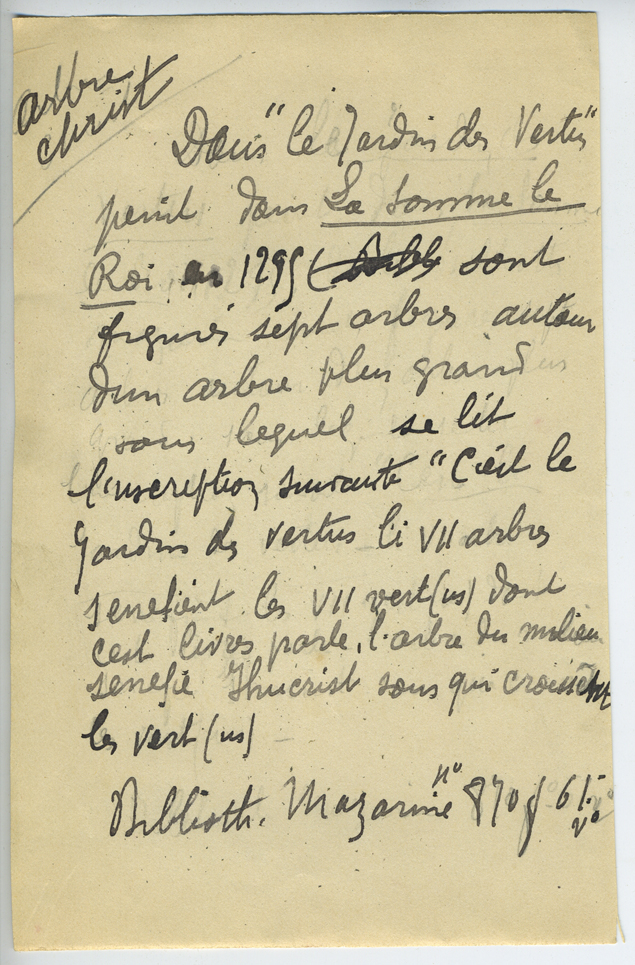 arbre
christ
Dans "le Jardin des Vertus"
peint dans La Somme le
Roi en 1295 ( Bibl sont
figurés sept arbres autour
d'un arbre plus grand
sous lequel se lit
l'inscription suivante "C'est le
Jardin des vertus li VII arbres
senefient les VII vert(us) dont
cest livres parle, l'arbre du milieu
senefie Jhucrist sous qui croissent
les vert(us)
Biblioth. Mazarine n° 870 f 61
v°